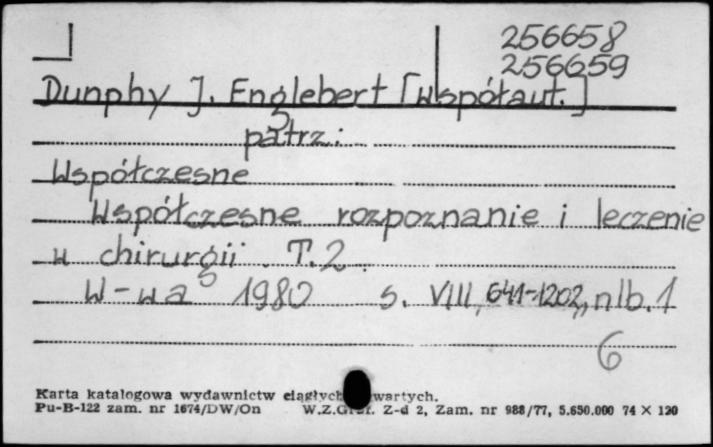 256658
256659
Dunphy J. Englebert [współaut.]
patrz:
Współczesne
Współczesne rozpoznanie i leczenie
w chirurgii. T.2.
W-wa 1980 s. VIII, 641-1202, nlb. 1
6
Karta katalogowa wydawnictw ciągłych
Pu-B-122 zam. nr 1674/DW/On W.Z.Graf. Z-d 2, Zam. nr 988/77, 5.650.000 74 × 120